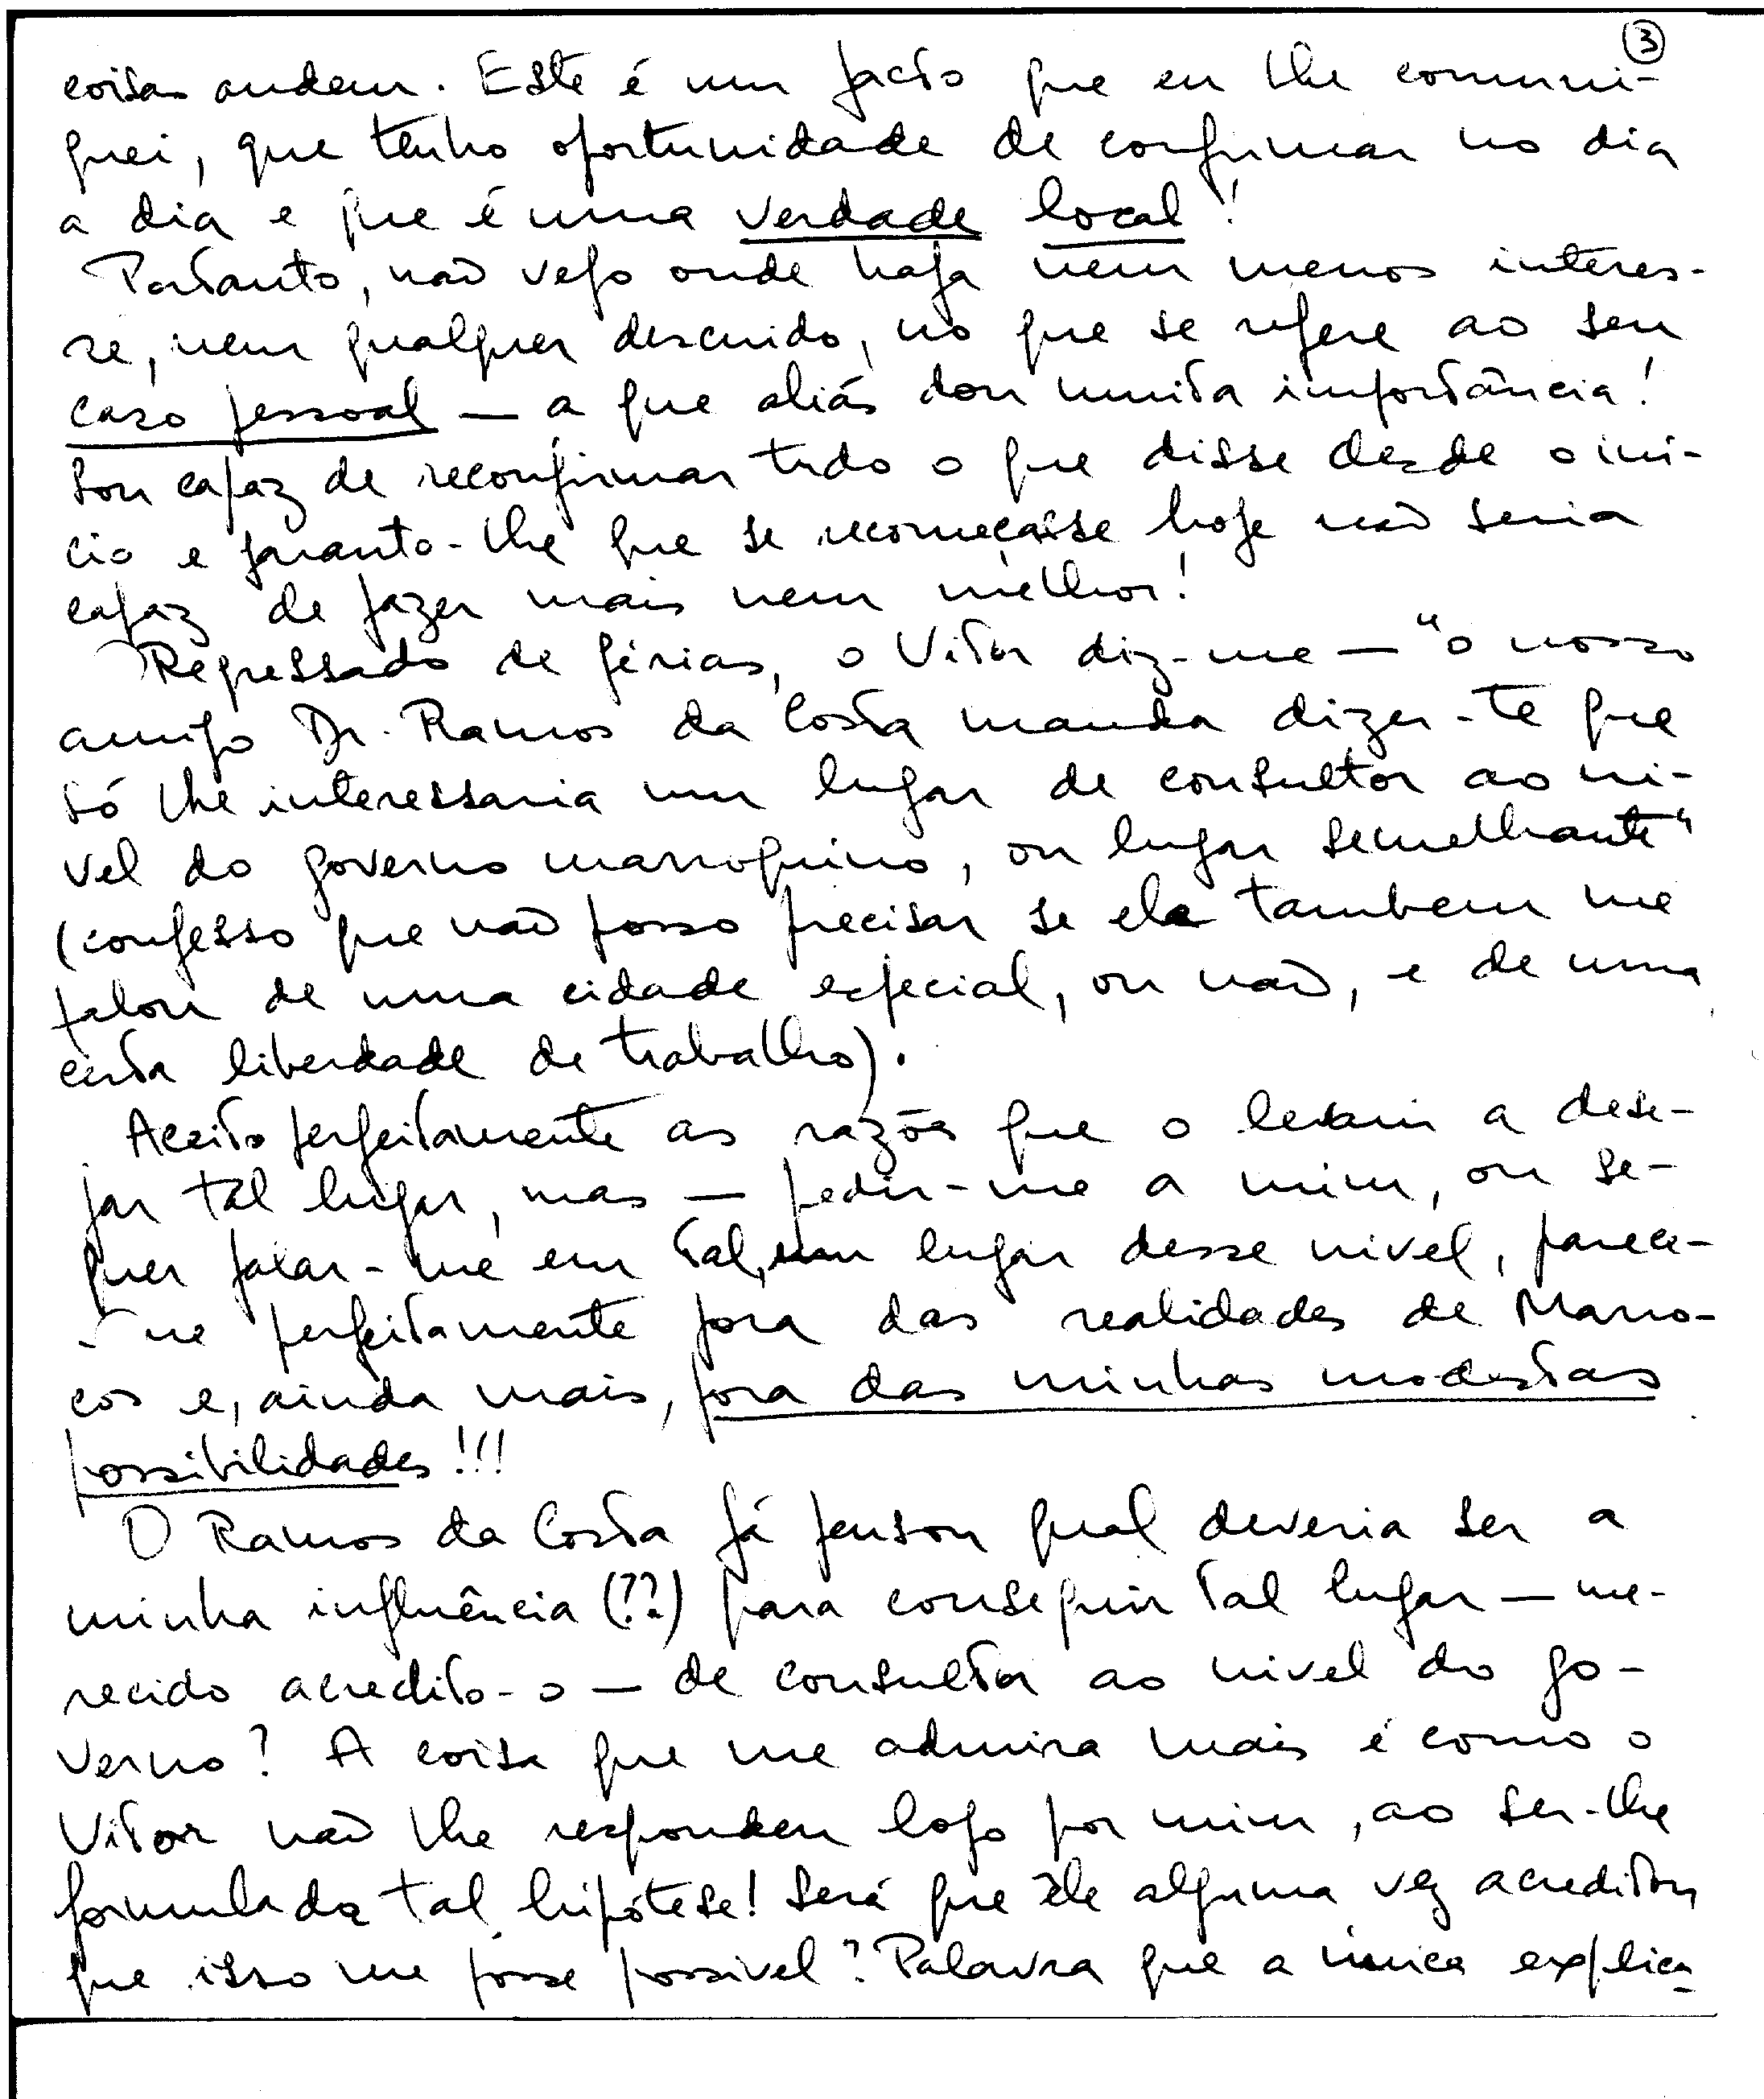 3
coisas andem. Este é um facto que eu lhe comuni-
quei, que tenho oportunidade de confirmar no dia
a dia e que é uma verdade local!
Portanto, não vejo onde haja nem menos interes-
se, nem qualquer descuido, no que se refere ao seu
caso pessoal — a que aliás dou muita importância!
Sou capaz de reconfirmar tudo o que disse desde o iní-
cio e garanto-lhe que se recomeçasse hoje não seria
capaz de fazer mais nem melhor!
Regressado de férias, o Vitor diz-me — "o nosso
amigo Dr. Ramos da Costa manda dizer-te que
só lhe interessaria um lugar de consultor ao ni-
vel do governo marroquino, ou lugar semelhante"
(confesso que não posso precisar se ele tambem me
falou de uma cidade especial, ou não, e de uma
certa liberdade de trabalho).
Aceito perfeitamente as razões que o levam a dese-
jar tal lugar, mas — pedir-me a mim, ou se-
quer falar-me em tal, um lugar desse nivel, parece-
-me perfeitamente fora das realidades de Marro-
cos e, ainda mais, fora das minhas modestas
possibilidades!!!
O Ramos da Costa já pensou qual deveria ser a
minha influência (??) para conseguir tal lugar — me-
recido acredito-o — de consultor ao nivel do go-
verno? A coisa que me admira mais é como o
Vitor não lhe respondeu logo por mim, ao ser-lhe
formulada tal hipótese! Será que êle alguma vez acreditou
que isso me fosse possivel? Palavra que a única explica-